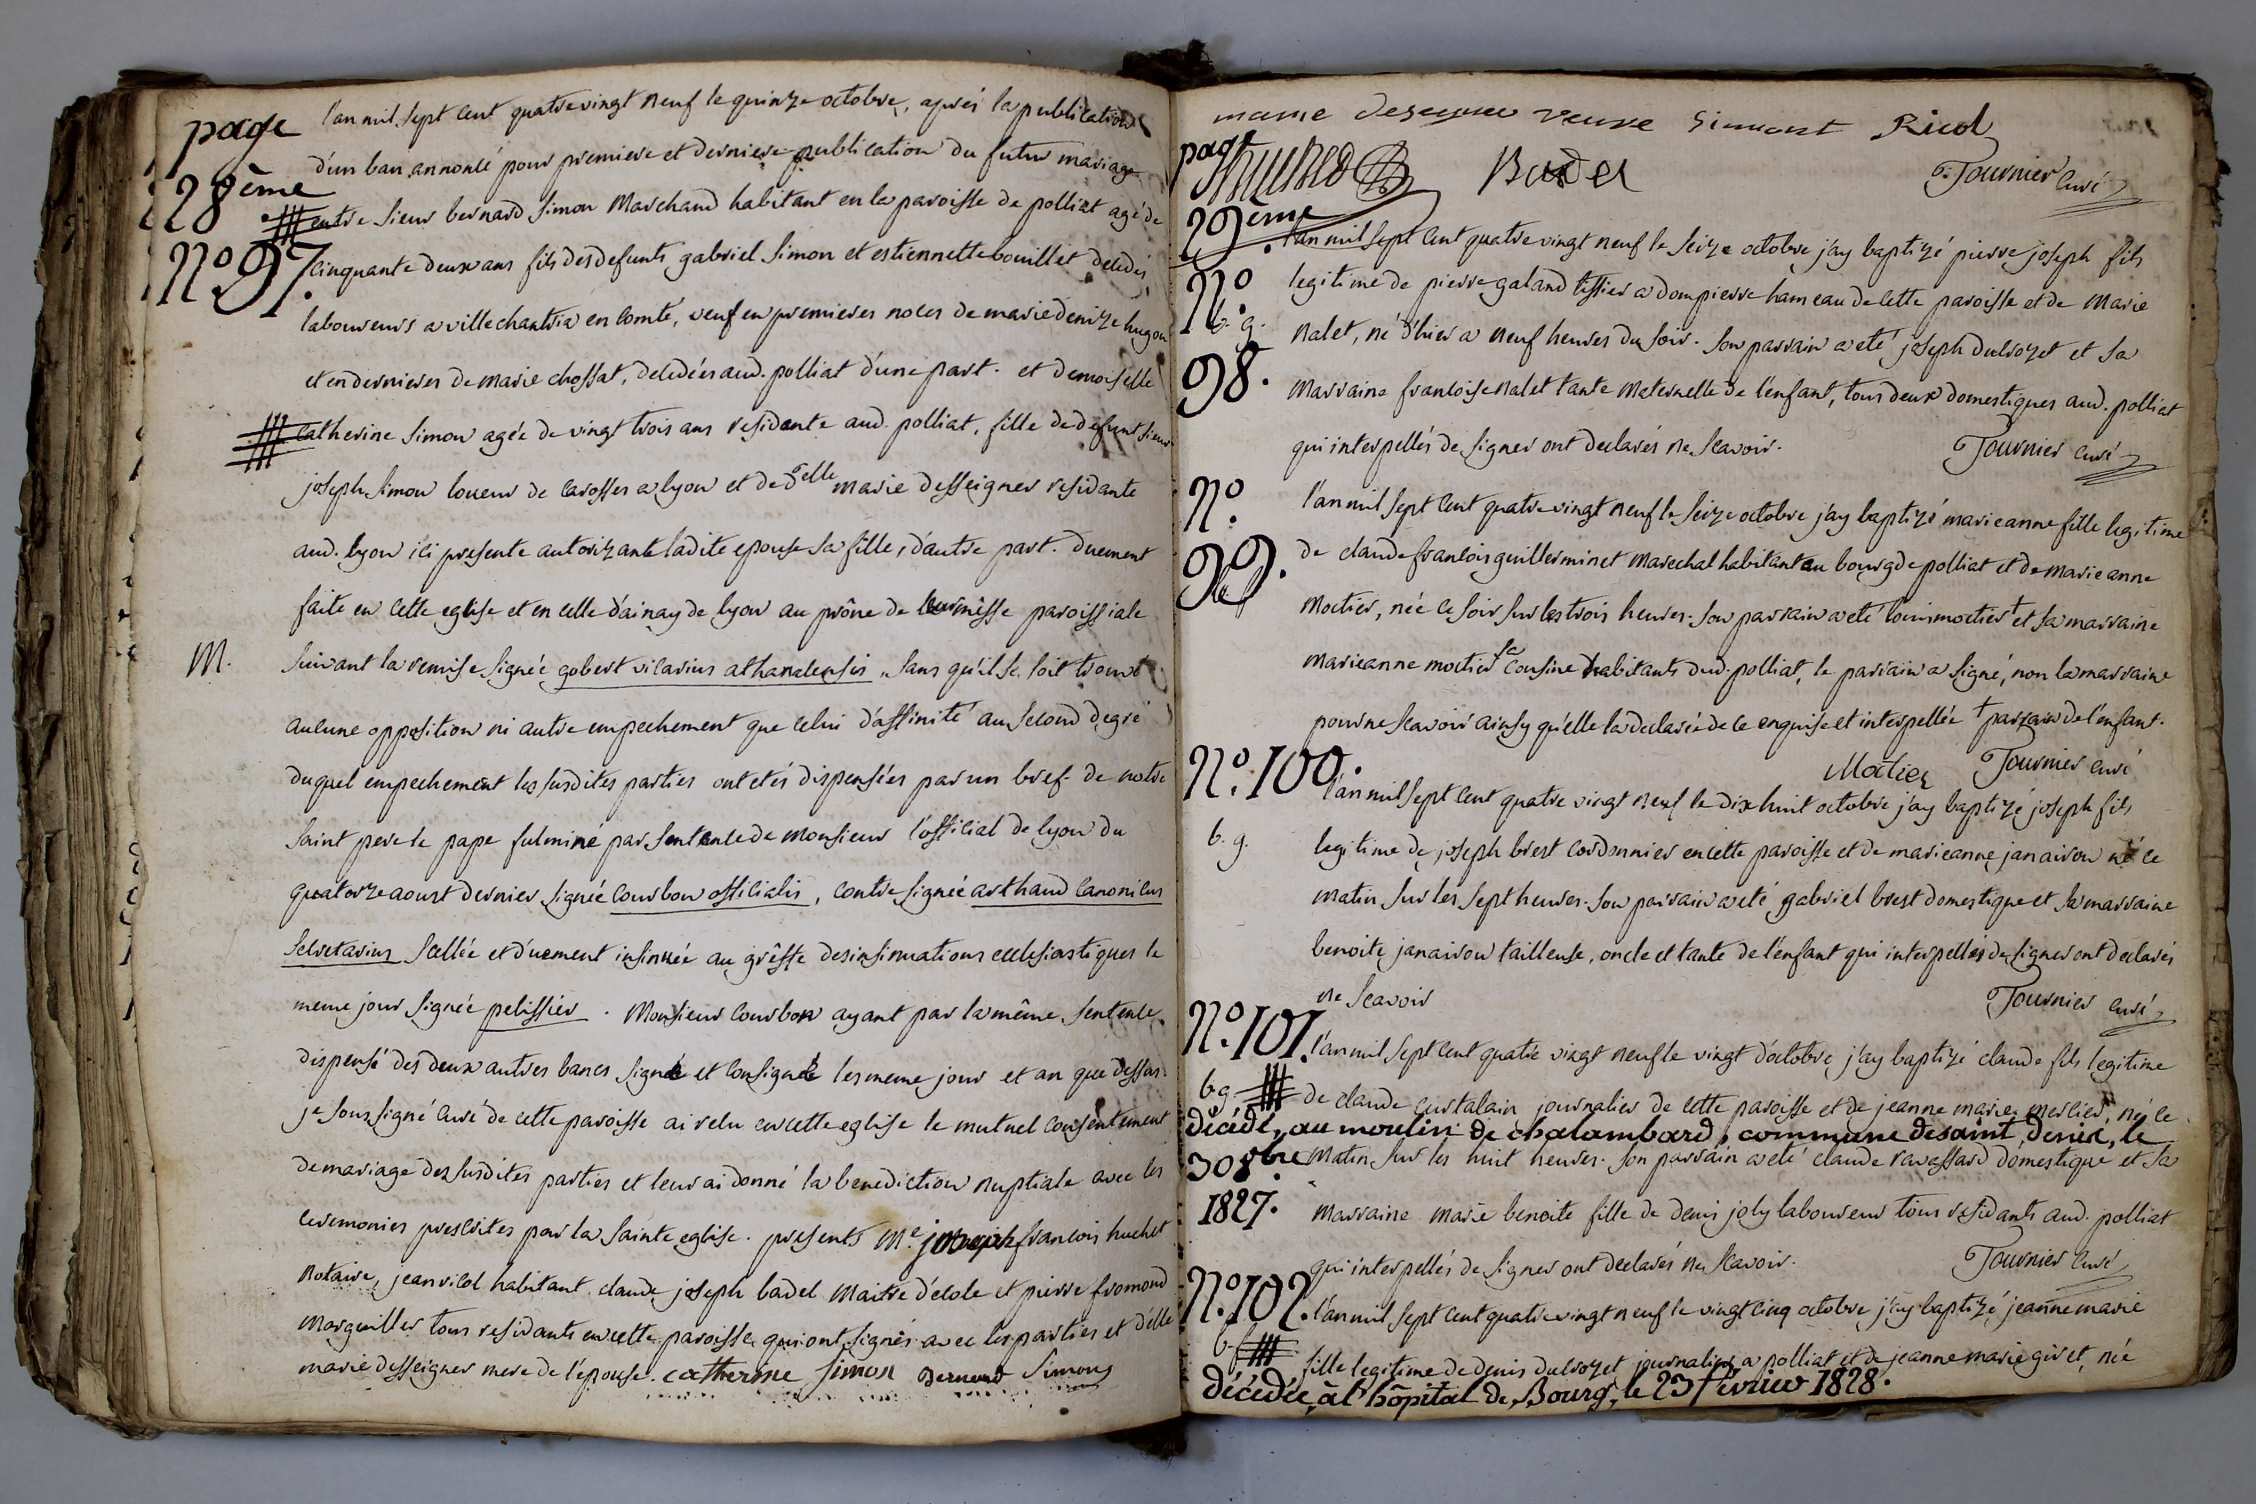 page
28ème
N° 97.
l'an mil sept cent quatre vingt neuf le quinze octobre, après la publication
d'un ban annoncé pour premiere et derniere publication du futur mariage
entre sieur bernard simon Marchand habitant en la paroisse de polliat agé de
cinquante deux ans fils des defunts gabriel simon et estiennette bouillet decedés
laboureurs a villechantria en comté, veuf en premieres noces de marie denize hugon
et en dernieres de marie chossat, decedées aud. polliat d'une part. et demoiselle
catherine simon agée de vingt trois ans residante aud. polliat, fille de defunt sieur
joseph simon loueur de carosses a lyon et de delle marie desseignes residante
aud. lyon ici presente autorizante ladite epouse sa fille, d'autre part. duement
faite en cette eglise et en celle d'ainay de lyon au prône de leur mêsse paroissiale
M.
suivant la remise signée gobert vicarius athanatensis, sans qu'il se soit trouvé
aucune opposition ni autre empechement que celui d'affinité au second degré
duquel empechement les susdites parties ont etés dispensées par un bref de notre
saint pere le pape fulminé par sentence de Monsieur l'official de lyon du
quatorze aoust dernier signée courbon officialis, contre signée arthaud canonicus
secretarius scellée et d'uement insinuée au grêffe des insinuations ecclesiastiques le
meme jour signée pelissier. Monsieur courbon ayant par la même sentence
dispensé des deux autres bancs signée et consignée les meme jour et an que dessus.
je soussigné curé de cette paroisse ai reçu en cette eglise le mutuel consentement
de mariage des susdites parties et leur ai donné la benediction nuptiale avec les
ceremonies prescrites par la sainte eglise. presents Me. joseph francois huchet
notaire, jean ricol habitant claude joseph badel maitre d'ecole et pierre fromond
marguiller tous residants en cette paroisse qui ont signés avec les parties et d'elle
marie desseignes mere de l'epouse. catherine simon Bernard Simons
marie veuve simont Ricol
page
Badel
Tournier curé
29ème
N°.
b. g.
98.
l'an mil sept cent quatre vingt neuf le seize octobre j'ay baptizé pierre joseph fils
legitime de pierre galand tissier a dompierre hameau de cette paroisse et de marie
nalet, né d'hier a neuf heures du soir. son parrain a eté joseph dulsozet et sa
marraine francoise nalet tante maternelle de l'enfant, tous deux domestiques aud. polliat
qui interpellés de signer ont declarés ne scavoir.
Tournier curé
N°.
99.
l'an mil sept cent quatre vingt neuf le seize octobre j'ay baptizé marieanne fille legitime
de claude francois guillerminet marechal habitant au bourg de polliat et de marieanne
moctier, née ce soir sur les trois heures. son parrain a eté louis moctier † et sa marraine
marieanne moctier sa cousine habitants dud. polliat, le parrain a signé, non la marraine
pour ne scavoir ainsy qu'elle l'a declarée de ce enquise et interpellée † parrain de l'enfant.
Moctier Tournier curé
N°. 100.
l'an mil sept cent quatre vingt neuf le dix huit octobre j'ay baptizé joseph fils
b. g.
legitime de joseph brest cordonnier en cette paroisse et de marieanne janairon né ce
matin sur les sept heures. son parrain a eté gabriel brest domestique et sa marraine
benoite janairon tailleuse, oncle et tante de l'enfant qui interpellés de signer ont declarés
ne scavoir
Tournier curé
N°. 101.
l'an mil sept cent quatre vingt neuf le vingt d'octobre j'ay baptizé claude fils legitime
b g
de claude curtalain journalier de cette paroisse et de jeanne marie mercier, né ce
décédé, au moulin de chalambard, commune de saint denix, le
30 8bre
matin sur les huit heures. son parrain a eté claude ravassard domestique et sa
1827.
marraine marie benoite fille de denis joly laboureur tous residants aud. polliat
qui interpellés de signer ont declarés ne scavoir.
Tournier curé
N°. 102.
l'an mil sept cent quatre vingt neuf le vingt cinq octobre j'ay baptizé jeanne marie
b. f.
fille legitime de denis dulsozet journalier a polliat et de jeanne marie giret, née
décédée, à l'hôpital de Bourg, le 23 février 1828.